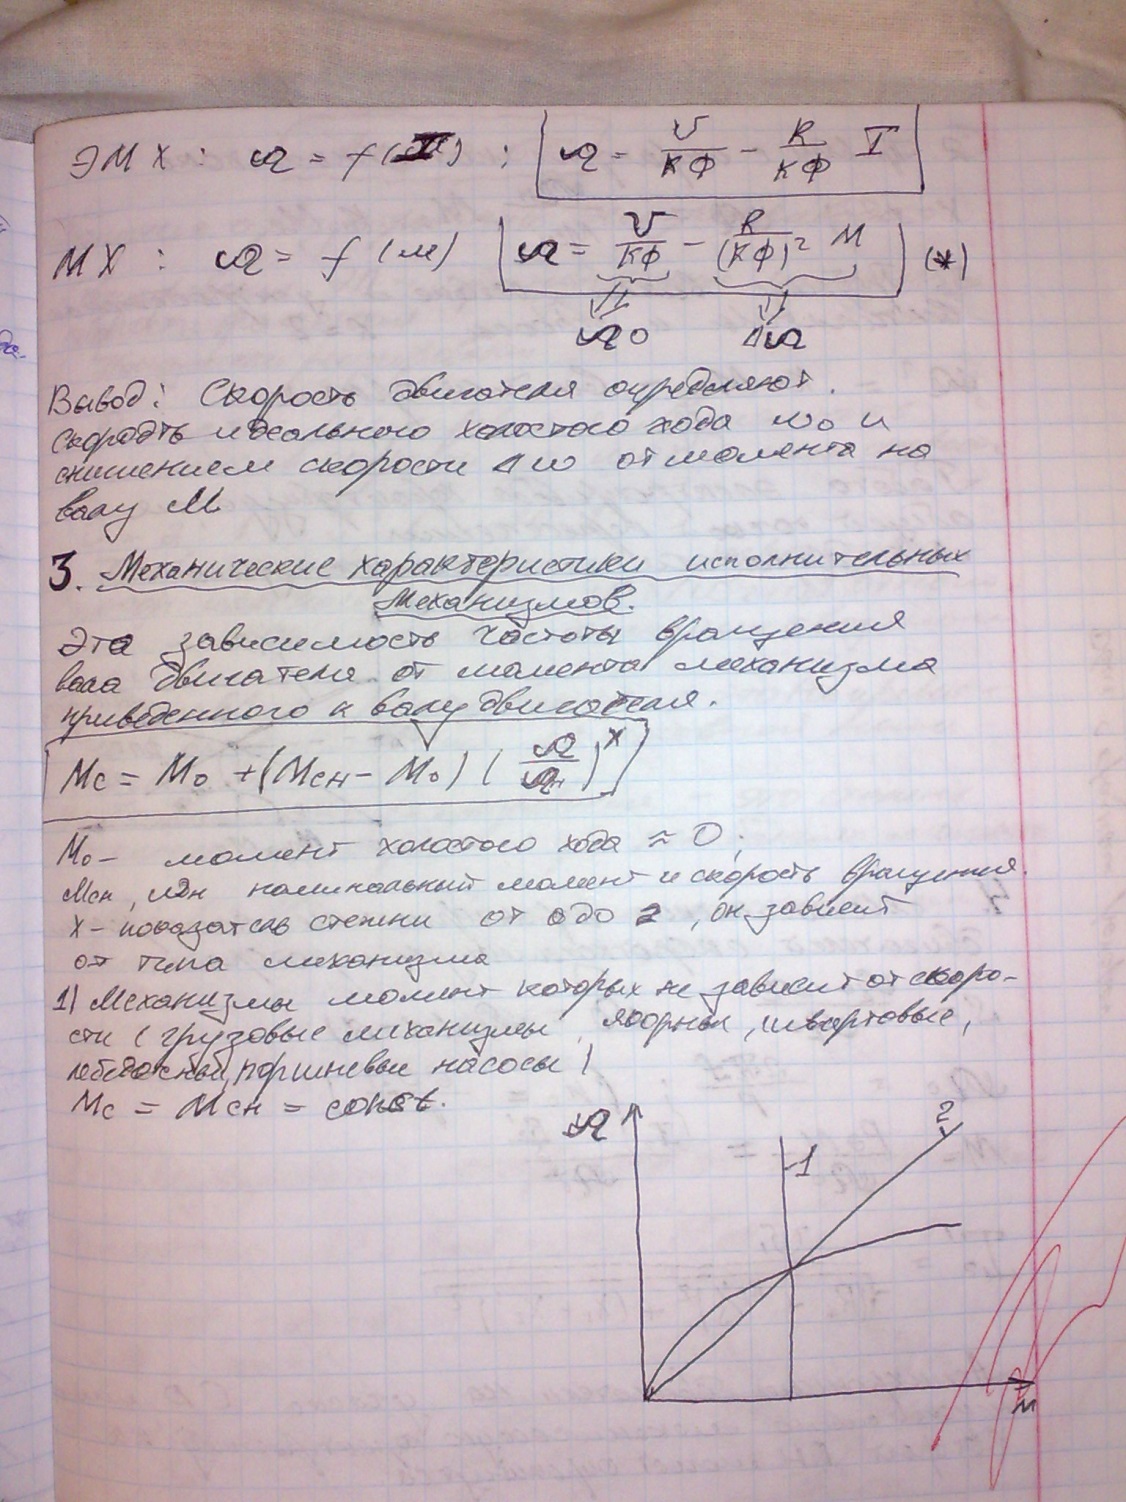 ЭМХ: Ω = f(I) : Ω = U/КФ − R/КФ I
МХ: Ω = f(м) Ω = U/КФ − R/(КФ)² М (*)
Ω0 ΔΩ
Вывод: Скорость двигателя определяют.
скорость идеального холостого хода ω₀ и
снижением скорости Δω от момента на
валу М
3. Механические характеристики исполнительных
механизмов.
Эта зависимость частоты вращения
вала двигателя от момента механизма
приведенного к валу двигателя.
Мс = М₀ + (Мсн − М₀) (Ω/Ωн)^x
М₀ − момент холостого хода ≈ 0;
Мсн, Ωн номинальный момент и скорость вращения.
х − показатель степени от 0 до 2, он зависит
от типа механизма
1) Механизмы момент которых не зависит от скоро-
сти (грузовые механизмы, якорные, швартовые,
поршневые насосы)
Мс = Мсн = const.
Ω 1 2
М